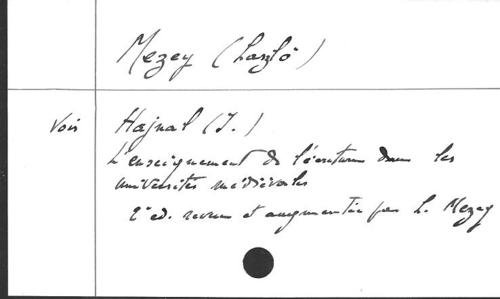 Mezey (Laszló)
Voir Hajnal (I.)
L'enseignement de l'écriture dans les
universités médiévales
2e ed. revue et augmentée par L. Mezey